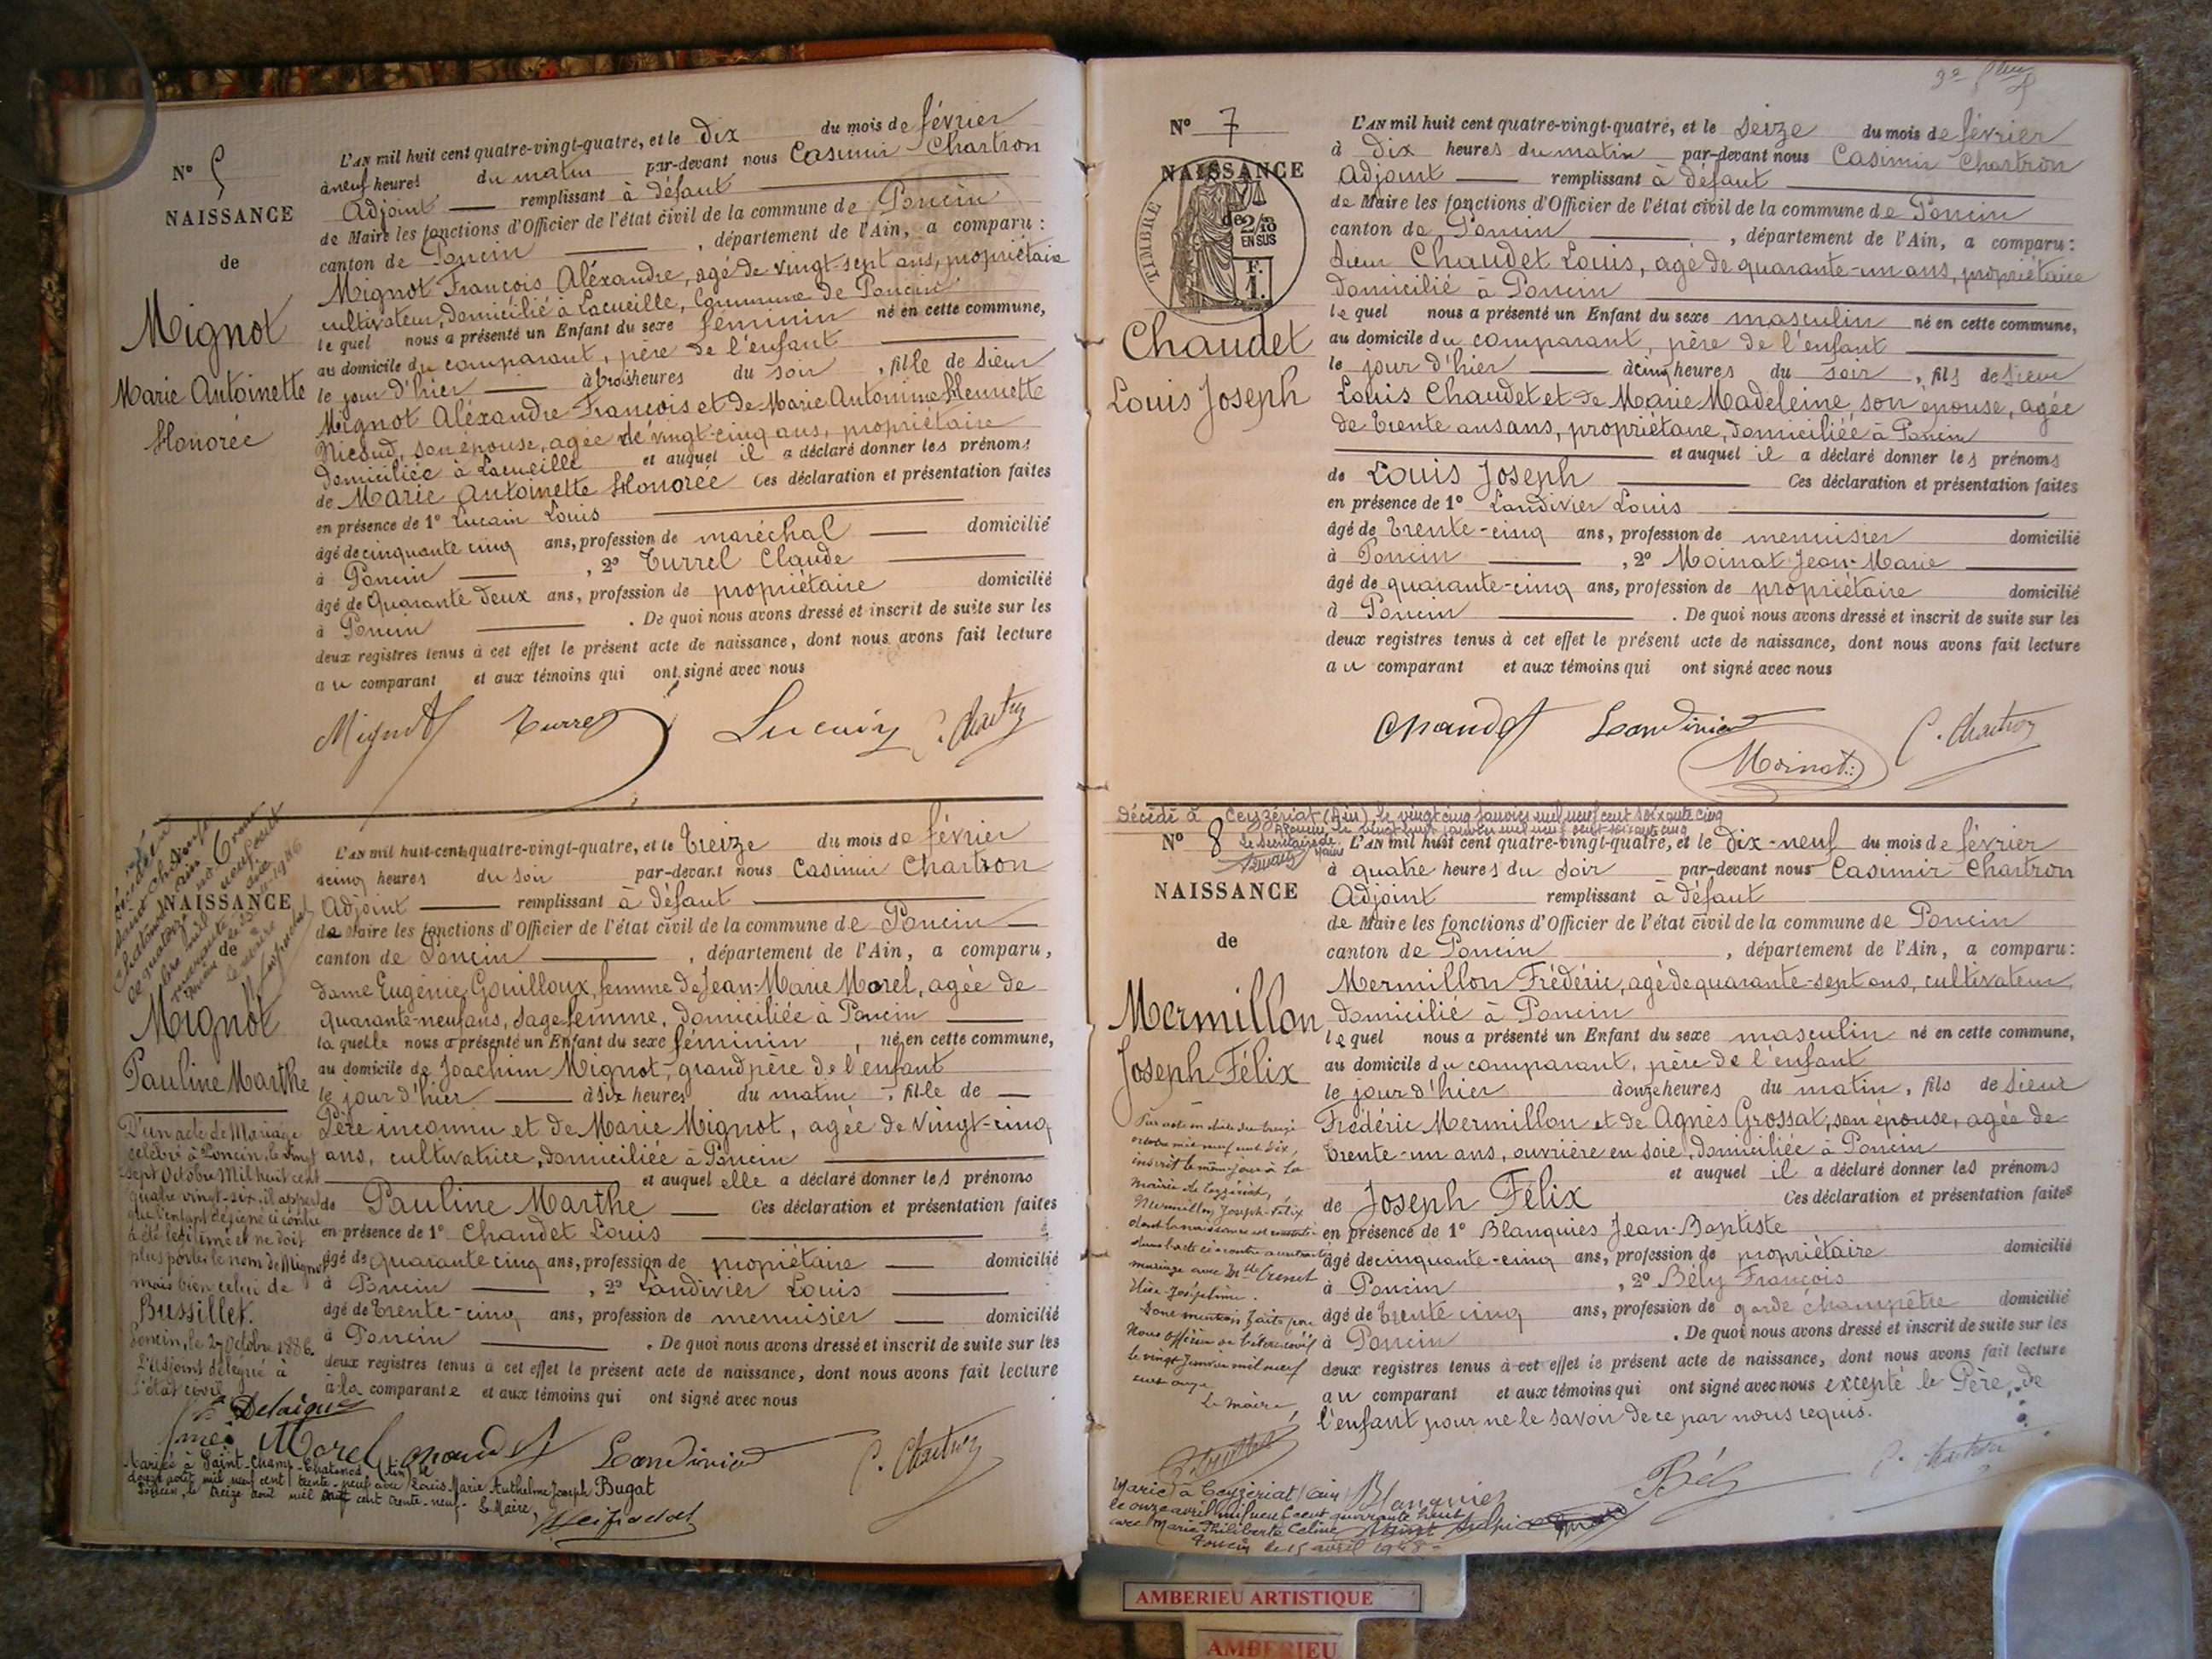 N° 5
NAISSANCE
de
Mignot
Marie Antoinette
Honorée
L'AN mil huit cent quatre-vingt-quatre, et le Dix du mois de février
à neuf heures du matin par-devant nous Casimir Chartron
Adjoint remplissant à défaut
de Maire les fonctions d'Officier de l'état civil de la commune de Poncin
canton de Poncin , département de l'Ain, a comparu :
Mignot François Aléxandre, agé de vingt-sept ans, propriétaire
cultivateur, domicilié à Lacueille, Commune de Poncin
lequel nous a présenté un Enfant du sexe féminin né en cette commune,
au domicile du comparant, père de l'enfant
le jour d'hier à trois heures du soir , fille de sieur
Mignot Aléxandre François et de Marie Antonine Henriette
Nicoud, son épouse, agée de vingt-cinq ans, propriétaire
domiciliée à Lacueille et auquel il a déclaré donner les prénoms
de Marie Antoinette Honorée Ces déclaration et présentation faites
en présence de 1° Lucain Louis
âgé de cinquante cinq ans, profession de maréchal domicilié
à Poncin , 2° Turrel Claude
âgé de Quarante deux ans, profession de propriétaire domicilié
à Poncin . De quoi nous avons dressé et inscrit de suite sur les
deux registres tenus à cet effet le présent acte de naissance, dont nous avons fait lecture
au comparant et aux témoins qui ont signé avec nous
Mignot Turrel Lucain C. Chartron
NAISSANCE
de
Mignot
Pauline Marthe
D'un acte de Mariage
célébré à Poncin, le vingt
sept Octobre Mil huit cent
quatre vingt-six, il appert
que l'enfant désigné ci contre
a été légitimé et ne doit
plus porter le nom de Mignot
mais bien celui de
Bussillet.
Poncin, le 27 Octobre 1886.
L'Adjoint délégué à
l'état civil
L'AN mil huit-cent quatre-vingt-quatre, et le Treize du mois de février
à cinq heures du soir par-devant nous Casimir Chartron
Adjoint remplissant à défaut
de Maire les fonctions d'Officier de l'état civil de la commune de Poncin
canton de Poncin , département de l'Ain, a comparu,
dame Eugénie Gouilloux, femme de Jean-Marie Morel, agée de
quarante-neuf ans, sage femme, domiciliée à Poncin
laquelle nous a présenté un Enfant du sexe féminin , né en cette commune,
au domicile de Joachim Mignot, grand père de l'enfant
le jour d'hier à six heures du matin , fille de
Père inconnu et de Marie Mignot, agée de Vingt-cinq
ans, cultivatrice, domiciliée à Poncin
et auquel elle a déclaré donner les prénoms
de Pauline Marthe Ces déclaration et présentation faites
en présence de 1° Chaudet Louis
âgé de Quarante cinq ans, profession de propriétaire domicilié
à Poncin , 2° Landivier Louis
âgé de Trente-cinq ans, profession de menuisier domicilié
à Poncin . De quoi nous avons dressé et inscrit de suite sur les
deux registres tenus à cet effet le présent acte de naissance, dont nous avons fait lecture
à la comparante et aux témoins qui ont signé avec nous
Morel Chaudet Landivier C. Chartron
Mariée à Saint-Champ-Chatonod (Ain) le
douze août mil neuf cent trente-neuf avec Louis Marie Anthelme Joseph Bugat
Poncin, le treize août mil neuf cent trente-neuf. Le Maire,
N° 7
NAISSANCE
de
TIMBRE
2/10
EN SUS
F.
1.
Chaudet
Louis Joseph
L'AN mil huit cent quatre-vingt-quatre, et le Seize du mois de février
à Dix heures du matin par-devant nous Casimir Chartron
Adjoint remplissant à défaut
de Maire les fonctions d'Officier de l'état civil de la commune de Poncin
canton de Poncin , département de l'Ain, a comparu :
Sieur Chaudet Louis, agé de quarante-un ans, propriétaire
domicilié à Poncin
lequel nous a présenté un Enfant du sexe masculin né en cette commune,
au domicile du comparant, père de l'enfant
le jour d'hier à cinq heures du soir , fils de Sieur
Louis Chaudet et de Marie Madeleine, son épouse, agée
de Trente ans ans, propriétaire, domiciliée à Poncin
et auquel il a déclaré donner les prénoms
de Louis Joseph Ces déclaration et présentation faites
en présence de 1° Landivier Louis
âgé de Trente-cinq ans, profession de menuisier domicilié
à Poncin , 2° Moinat Jean-Marie
âgé de quarante-cinq ans, profession de propriétaire domicilié
à Poncin . De quoi nous avons dressé et inscrit de suite sur les
deux registres tenus à cet effet le présent acte de naissance, dont nous avons fait lecture
au comparant et aux témoins qui ont signé avec nous
Chaudet Landivier Moinat C. Chartron
Décédé à Ceyzériat (Ain), le vingt cinq janvier mil neuf cent soixante cinq
N° 8
NAISSANCE
de
Mermillon
Joseph Félix
Par acte en date du treize
octobre mil neuf cent dix,
inscrit le même jour à la
mairie de Ceyzériat,
Mermillon Joseph-Félix
dont la naissance est constatée
dans l'acte ci-contre a contracté
mariage avec Mlle
Joséphine.
Dont mention faite par
Nous officier de l'état civil
le vingt Janvier mil neuf
cent onze
Le Maire,
L'AN mil huit cent quatre-vingt-quatre, et le Dix-neuf du mois de février
à quatre heures du soir par-devant nous Casimir Chartron
Adjoint remplissant à défaut
de Maire les fonctions d'Officier de l'état civil de la commune de Poncin
canton de Poncin , département de l'Ain, a comparu :
Mermillon Frédéric, agé de quarante-sept ans, cultivateur,
domicilié à Poncin
lequel nous a présenté un Enfant du sexe masculin né en cette commune,
au domicile du comparant, père de l'enfant
le jour d'hier à onze heures du matin, fils de Sieur
Frédéric Mermillon et de Agnès Grossat, son épouse, agée de
Trente-un ans, ouvrière en soie, domiciliée à Poncin
et auquel il a déclaré donner les prénoms
de Joseph Félix Ces déclaration et présentation faites
en présence de 1° Blanquies Jean-Baptiste
âgé de cinquante-cinq ans, profession de propriétaire domicilié
à Poncin , 2° Bély François
âgé de Trente cinq ans, profession de garde champêtre domicilié
à Poncin . De quoi nous avons dressé et inscrit de suite sur les
deux registres tenus à cet effet le présent acte de naissance, dont nous avons fait lecture
au comparant et aux témoins qui ont signé avec nous excepté le Père de
l'enfant pour ne le savoir de ce par nous requis.
Blanquies Bély C. Chartron
Marié à Ceyzériat (Ain)
le onze avril mil neuf cent quarante huit
avec Marie Philiberte Celine
Poncin le 15 avril 1948
AMBERIEU ARTISTIQUE
AMBERIEU